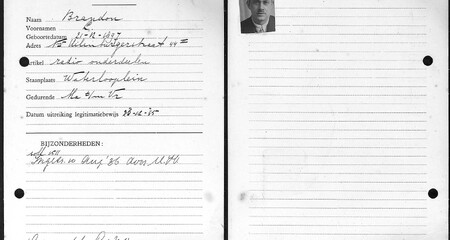 Naam Brandon
Voornamen L
Geboortedatum 21-12-1897
Adres Uilenburgerstraat 44
Artikel radio onderdeelen
Staanplaats Waterlooplein
Gedurende Ma t/m Vr
Datum uitreiking legitimatiebewijs 28-12-'35
BIJZONDERHEDEN:
Ingetr. 10 Aug '36 door